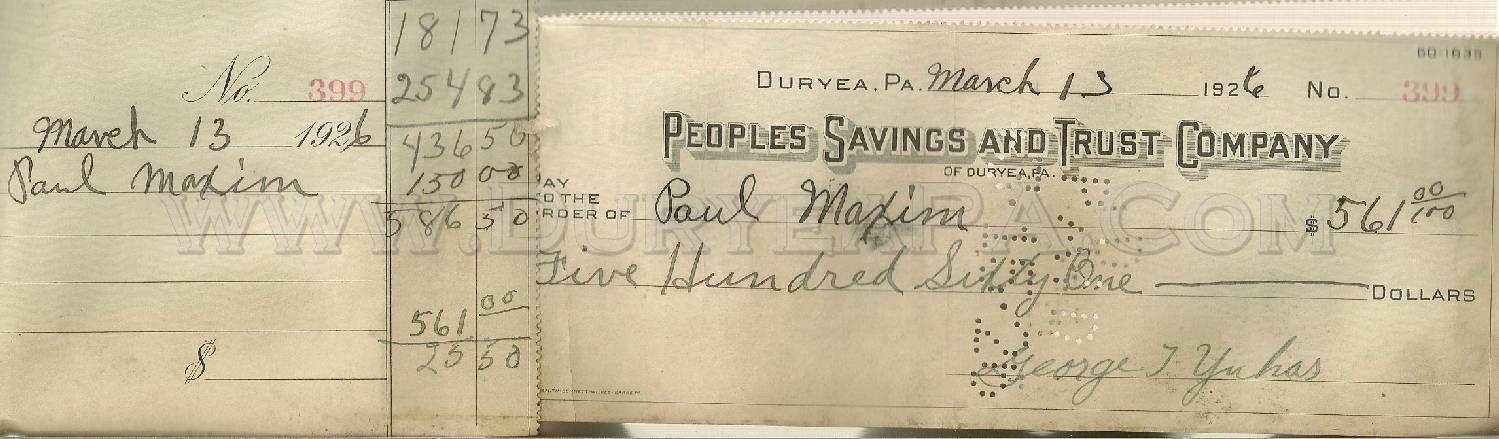 181 73
254 83
No. 399
March 13 1926
436 56
Paul Maxim
150 00
586 50
561 00
$
25 50
60-1635
DURYEA, PA. March 13 1926 No. 399
PEOPLES SAVINGS AND TRUST COMPANY
OF DURYEA, PA.
PAY TO THE ORDER OF Paul Maxim $ 561 00/100
Five Hundred Sixty One DOLLARS
George T. Yuhas
WWW.DURYEAPA.COM